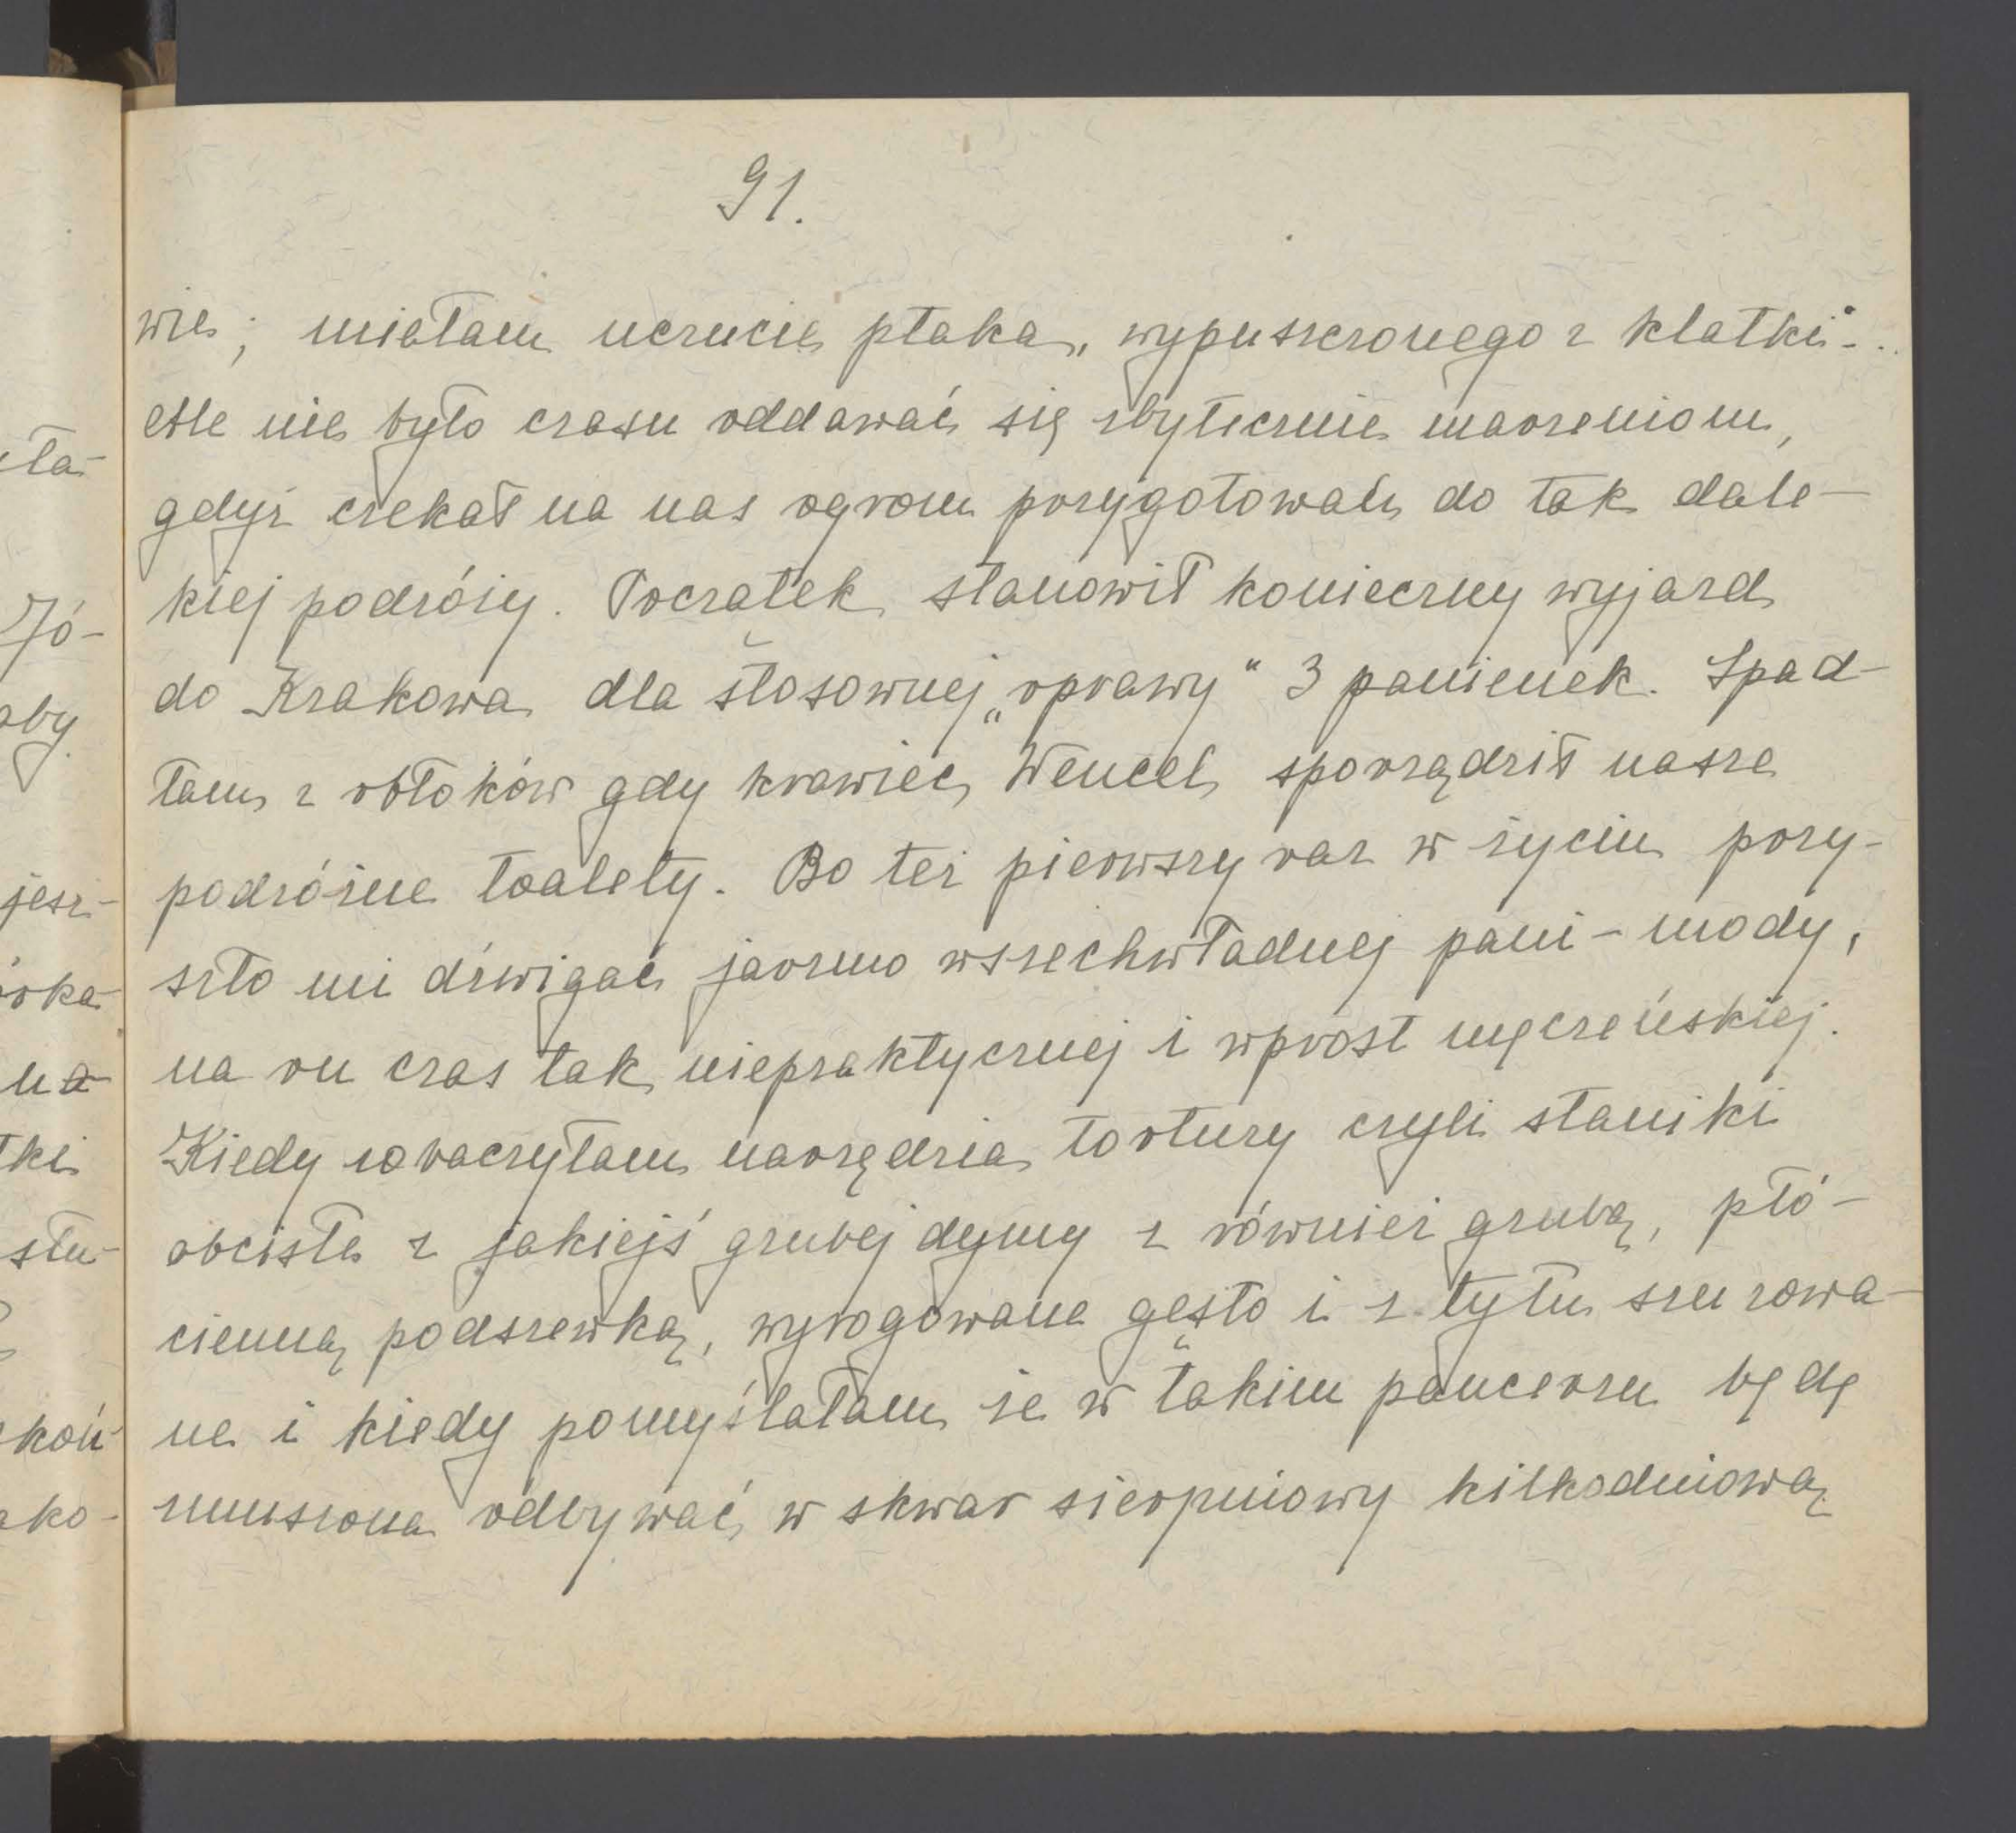 91.
wie; miałam uczucie ptaka, wypuszczonego z klatki...
Ale nie było czasu oddawać się zbytecznie marzeniom,
gdyż czekał na nas ogrom przygotowań do tak dale-
kiej podróży. Początek stanowił konieczny wyjazd
do Krakowa dla stosownej „oprawy“ 3 panienek. Spad-
łam z obłoków gdy krawiec Wencel sporządził nasze
podróżne toalety. Bo też pierwszy raz w życiu przy-
szło mi dźwigać jarzmo wszechwładnej pani-mody,
na on czas tak niepraktycznej i wprost męczeńskiej.
Kiedy zobaczyłam narzędzia tortury czyli staniki
obcisłe z jakiejś grubej dymy z również grubą, płó-
cienną podszewką, wyrogowane gęsto i z tyłu sznurowa-
ne i kiedy pomyślałam że w takim pancerzu będę
zmuszona odbywać w skwar sierpniowy kilkodniową
ła-
Jó-
oby
jesz-
órka
na
tki
słu-
koń
ako-